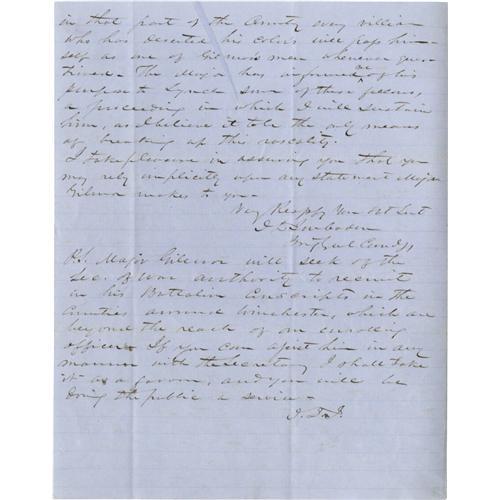 in that part of the County every villian
who has deserted his colors will pass him-
self as one of Gilmor's men whenever ques-
tioned. The Major has informed me of his
purpose to Lynch some of these fellows,
a proceeding in which I will sustain
him, as I believe it to be the only means
of breaking up this rascality.
I take pleasure in assuring you that you
may rely implicitly upon any statement Major
Gilmor makes to you.
Very Respfy Your Obt Svt
J D Imboden
Brig Genl Comdg
P.S. Major Gilmor will seek of the
Sec. of War authority to recruit
in his Battalion Conscripts in the
Counties around Winchester, which are
beyond the reach of our enrolling
officers. If you can assist him in any
manner with the Secretary I shall take
it as a favor, and you will be
doing the public a service.
J. D. I.